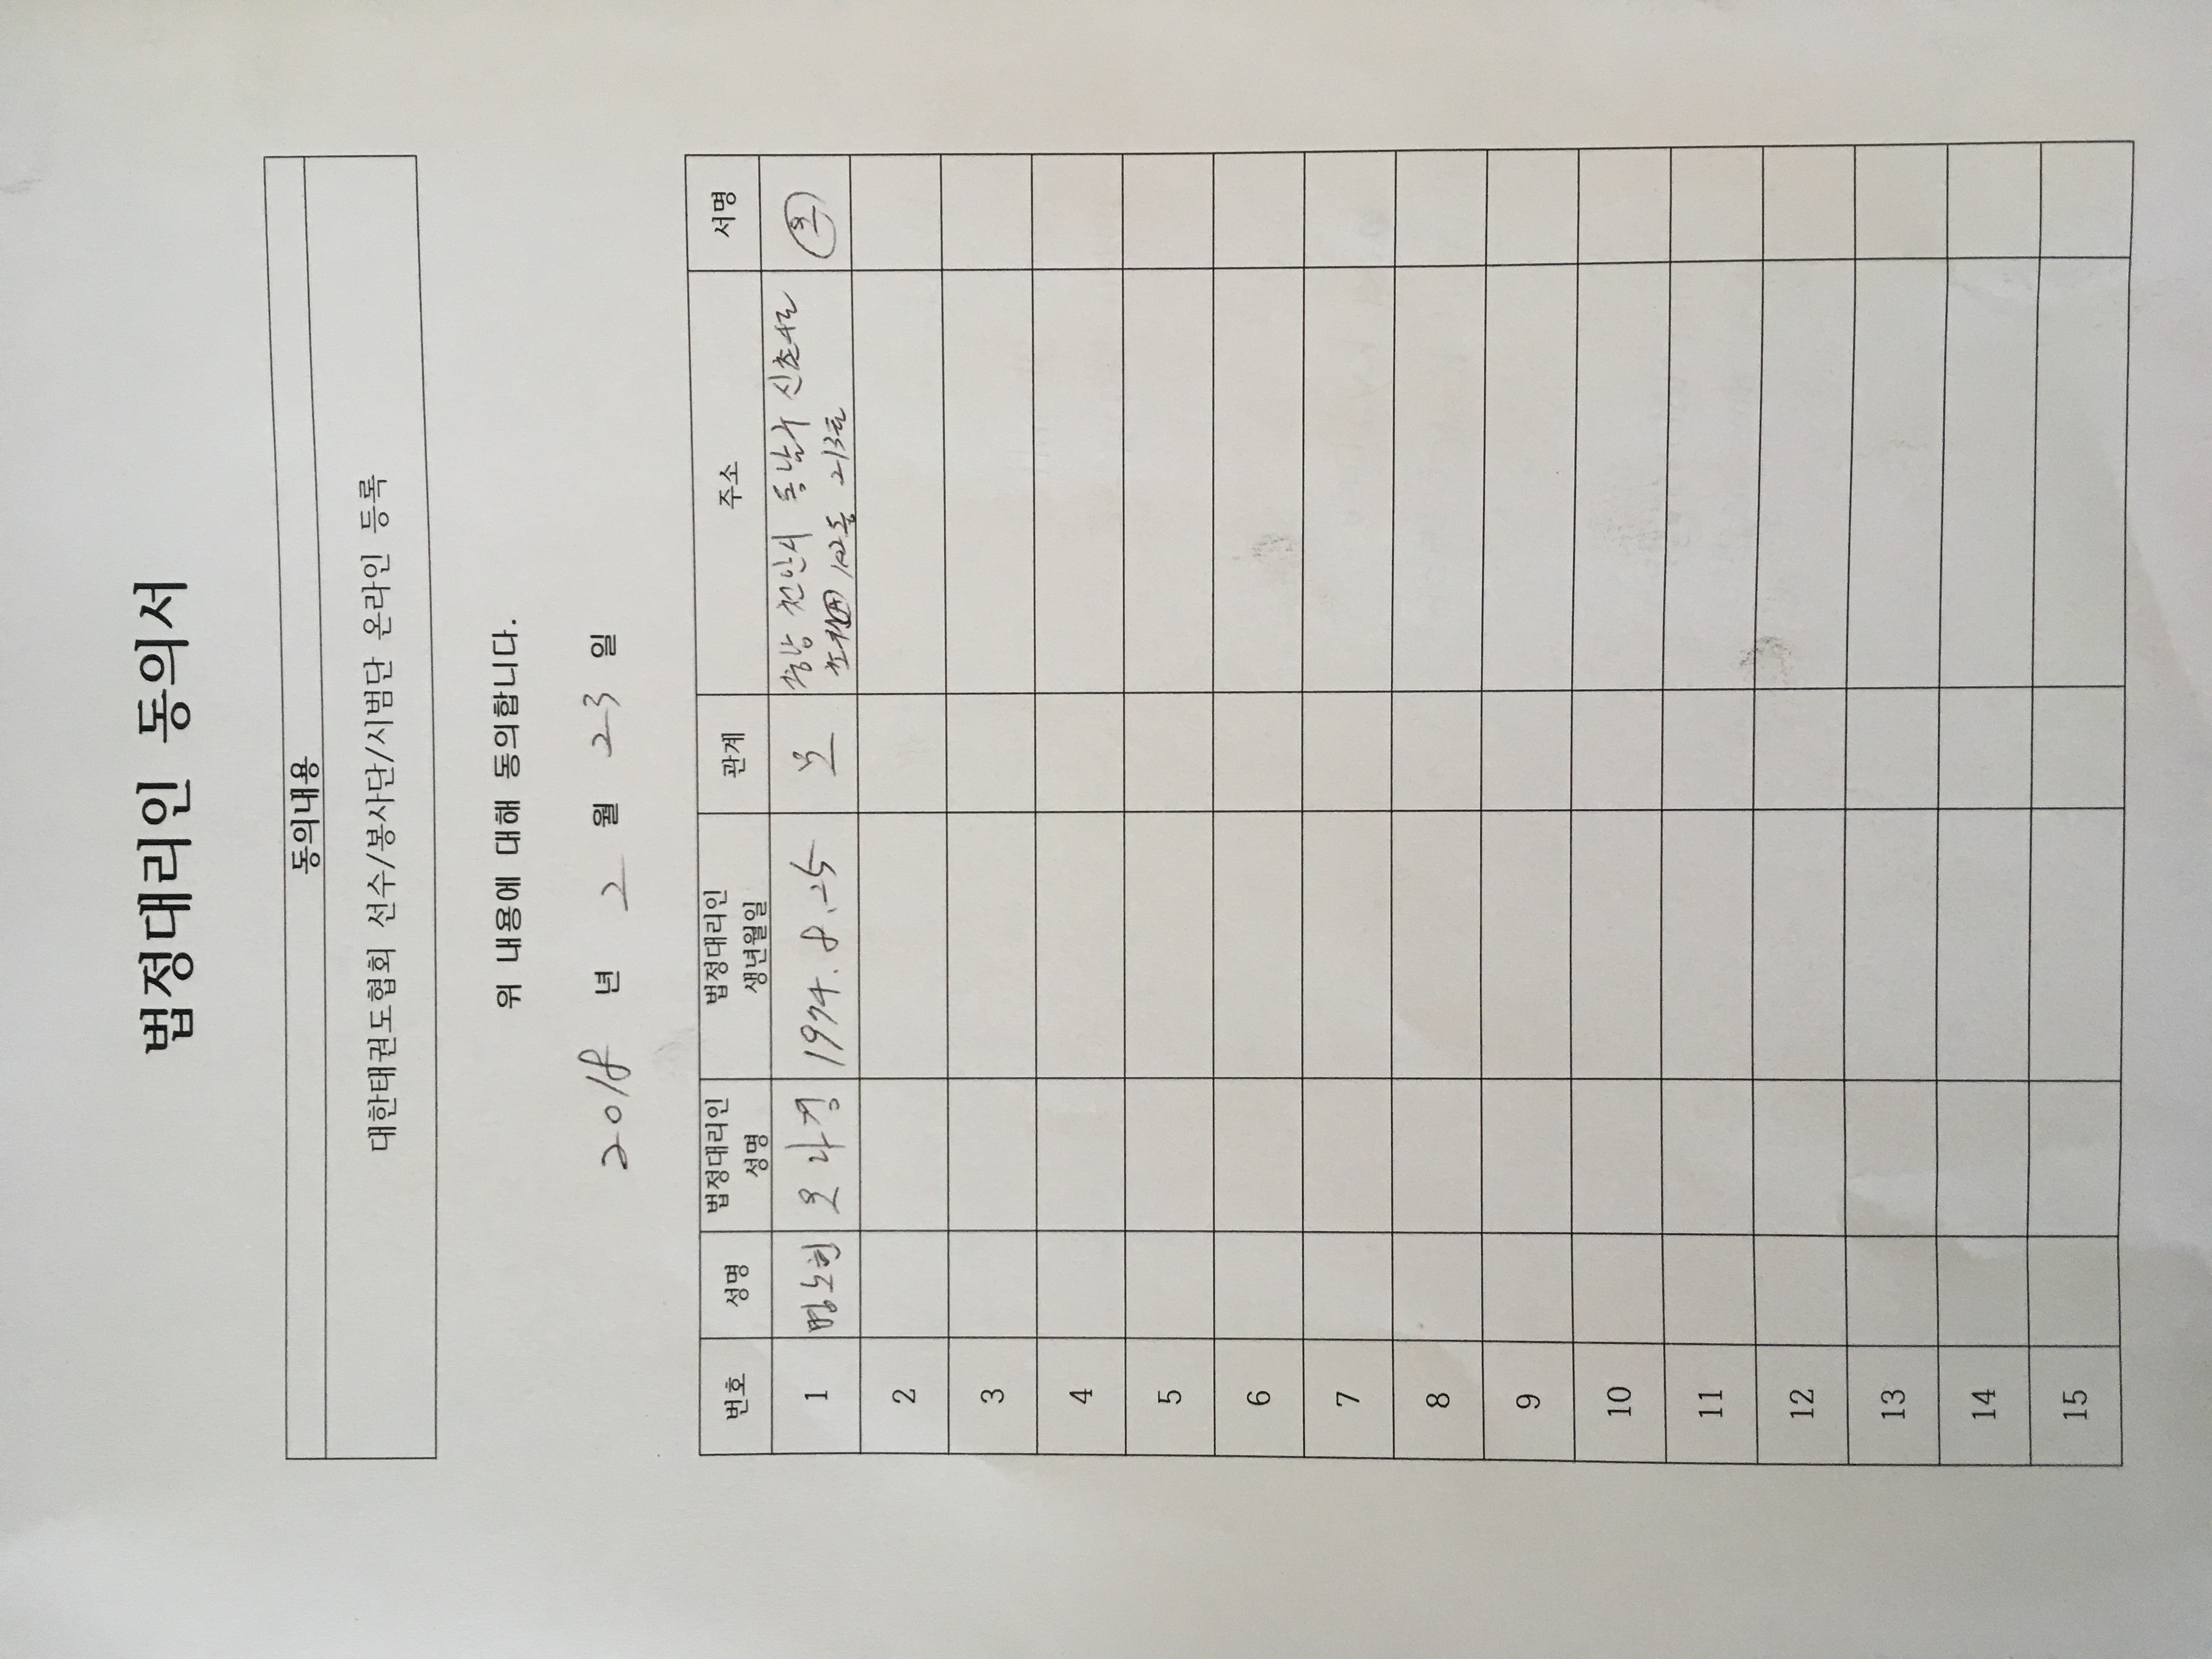 법정대리인 동의서
동의내용
대한태권도협회 선수/봉사단/시범단 온라인 등록
위 내용에 대해 동의합니다.
2018 년 2 월 23 일
번호 성명 법정대리인 성명 법정대리인 생년월일 관계 주소 서명
1 오나경 1974. 8. 25 모 충남 천안시 동남구 신촌4로
102동 213호
2
3
4
5
6
7
8
9
10
11
12
13
14
15